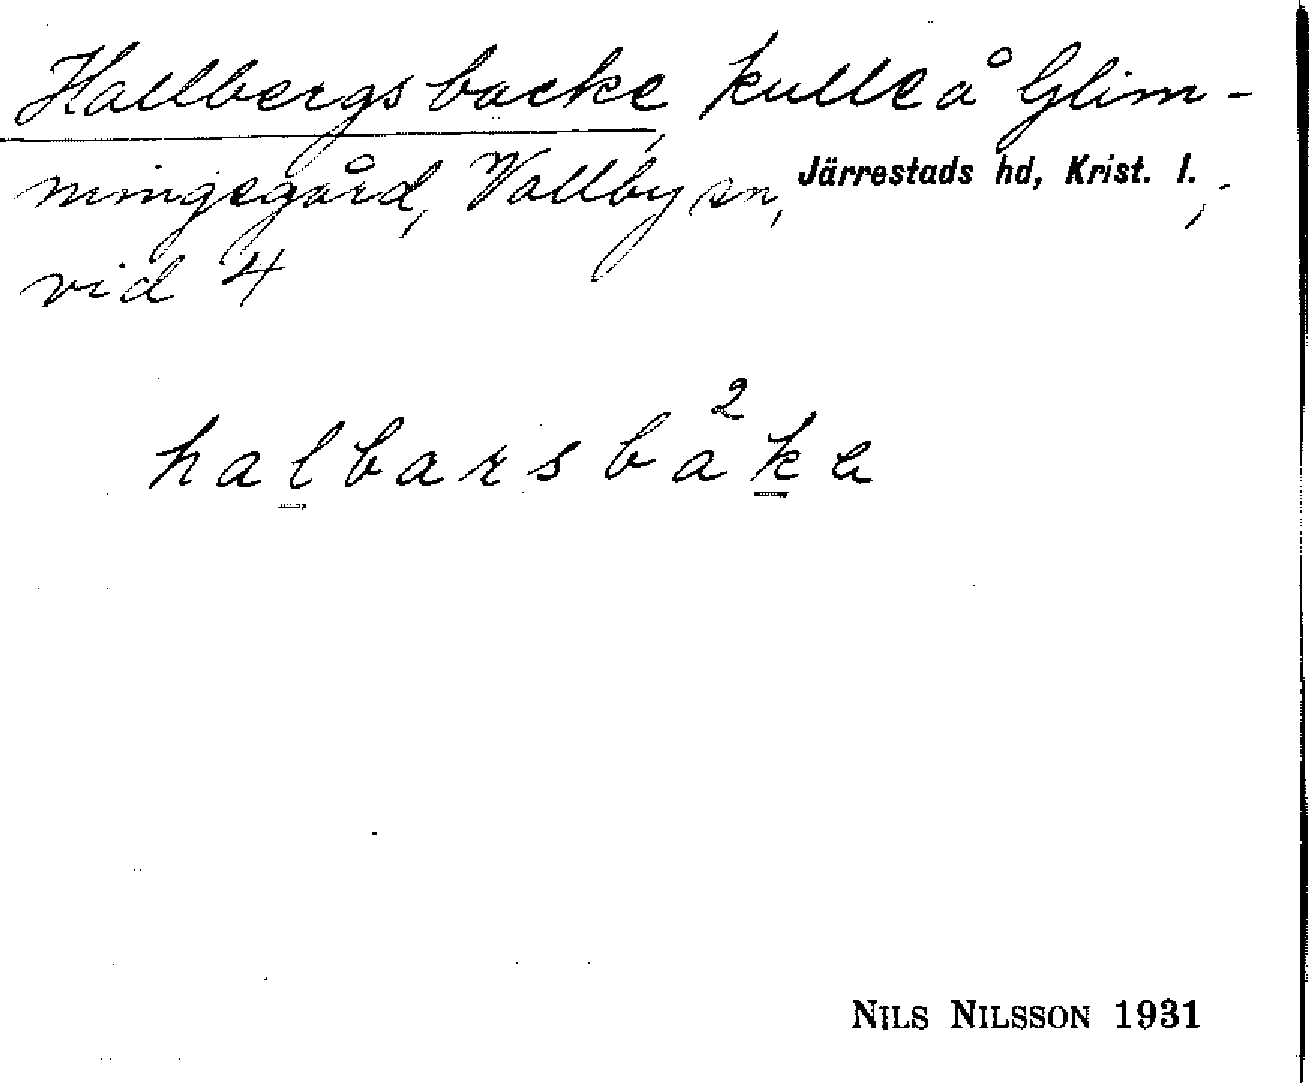 Hallbergsbacke, kulle å Glim-
mingegård, Vallby sn, Järrestads hd, Krist. l.,
vid 4
halbarsba²ka
NILS NILSSON 1931